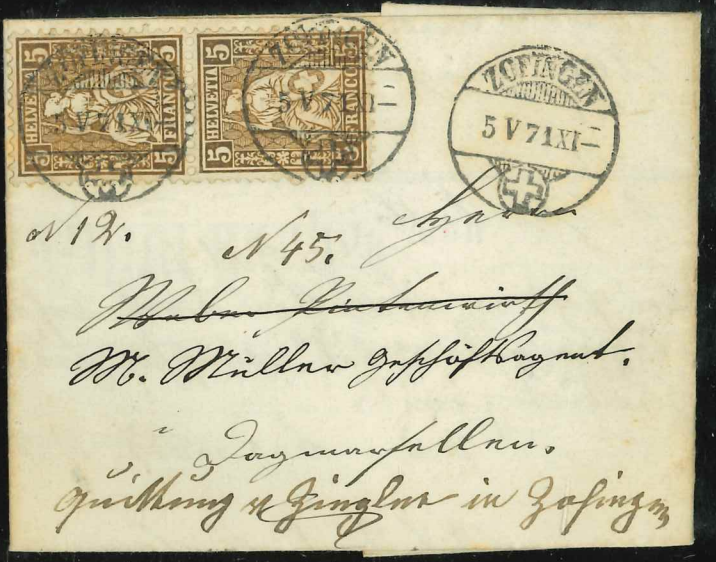 5 HELVETIA 5
5 FRANCO 5
5 HELVETIA 5
5 FRANCO 5
ZOFINGEN
5 V 71 XI–
ZOFINGEN
5 V 71 XI–
ZOFINGEN
5 V 71 XI–
N 12.
N 45.
Herrn
Weber Pintenwirth
M. Müller Geschäftsagent.
Dagmarsellen.
Quittung v Zingler in Zofingen